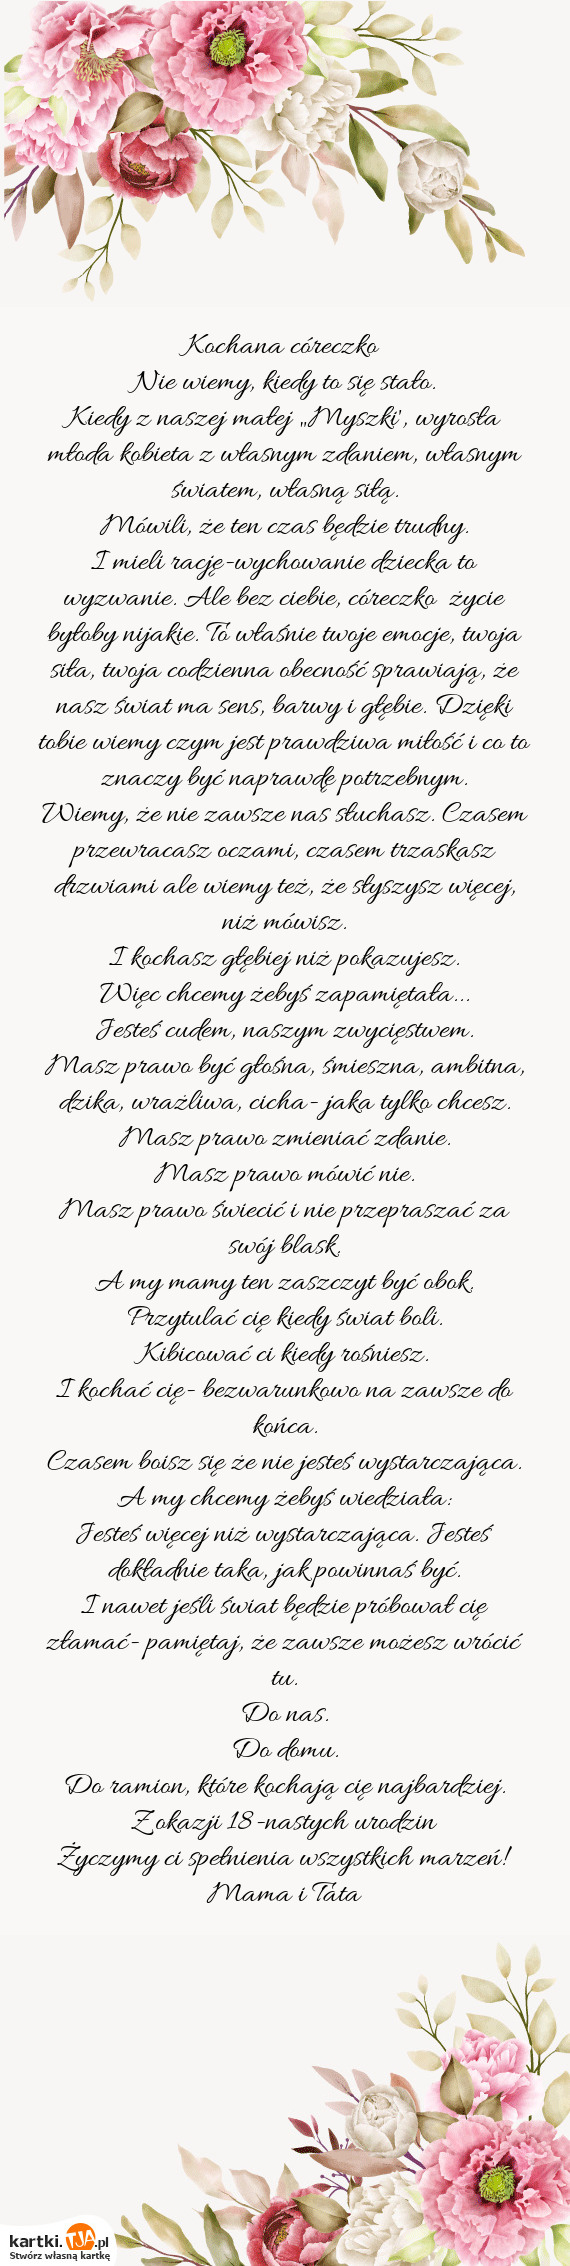 Kochana córeczko
Nie wiemy, kiedy to się stało.
Kiedy z naszej małej „Myszki', wyrosła
młoda kobieta z własnym zdaniem, własnym
światem, własną siłą.
Mówili, że ten czas będzie trudny.
I mieli rację-wychowanie dziecka to
wyzwanie. Ale bez ciebie, córeczko  życie
byłoby nijakie. To właśnie twoje emocje, twoja
siła, twoja codzienna obecność sprawiają, że
nasz świat ma sens, barwy i głębie. Dzięki
tobie wiemy czym jest prawdziwa miłość i co to
znaczy być naprawdę potrzebnym.
Wiemy, że nie zawsze nas słuchasz. Czasem
przewracasz oczami, czasem trzaskasz
drzwiami ale wiemy też, że słyszysz więcej,
niż mówisz.
I kochasz głębiej niż pokazujesz.
Więc chcemy żebyś zapamiętała...
Jesteś cudem, naszym zwycięstwem.
Masz prawo być głośna, śmieszna, ambitna,
dzika, wrażliwa, cicha- jaka tylko chcesz.
Masz prawo zmieniać zdanie.
Masz prawo mówić nie.
Masz prawo świecić i nie przepraszać za
swój blask.
A my mamy ten zaszczyt być obok.
Przytulać cię kiedy świat boli.
Kibicować ci kiedy rośniesz.
I kochać cię- bezwarunkowo na zawsze do
końca.
Czasem boisz się że nie jesteś wystarczająca.
A my chcemy żebyś wiedziała:
Jesteś więcej niż wystarczająca. Jesteś
dokładnie taka, jak powinnaś być.
I nawet jeśli świat będzie próbował cię
złamać- pamiętaj, że zawsze możesz wrócić
tu.
Do nas.
Do domu.
Do ramion, które kochają cię najbardziej.
Z okazji 18-nastych urodzin
Życzymy ci spełnienia wszystkich marzeń!
Mama i Tata
kartki.TJA.pl
Stwórz własną kartkę